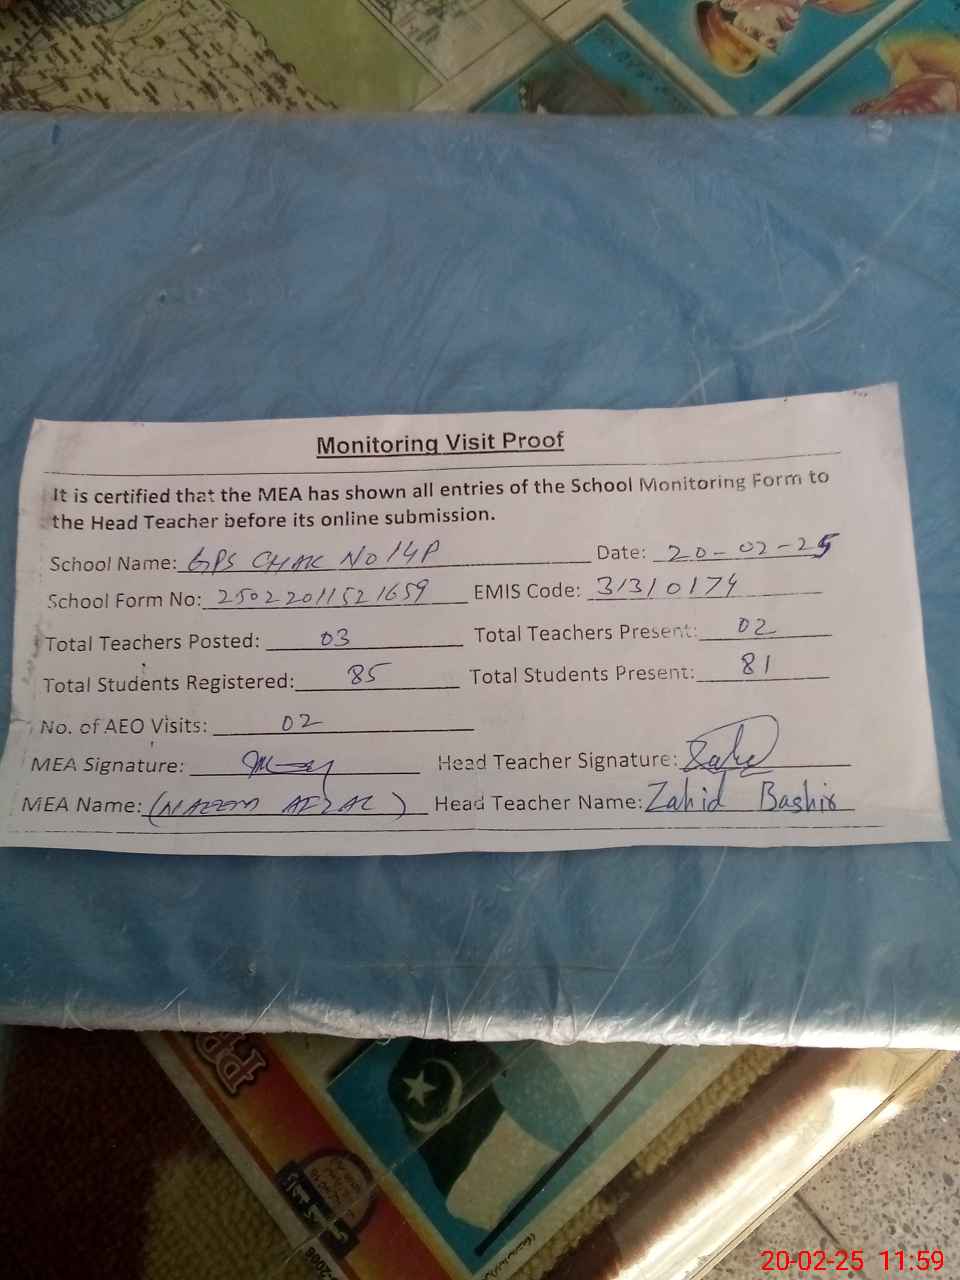 Monitoring Visit Proof
It is certified that the MEA has shown all entries of the School Monitoring Form to
the Head Teacher before its online submission.
School Name: GPS CHAK NO 14P Date: 20-02-25
School Form No: 25022011521659 EMIS Code: 31310174
Total Teachers Posted: 03 Total Teachers Present: 02
Total Students Registered: 85 Total Students Present: 81
No. of AEO Visits: 02
MEA Signature: Head Teacher Signature:
MEA Name: (NAEEM AFZAL) Head Teacher Name: Zahid Bashir
20-02-25 11:59